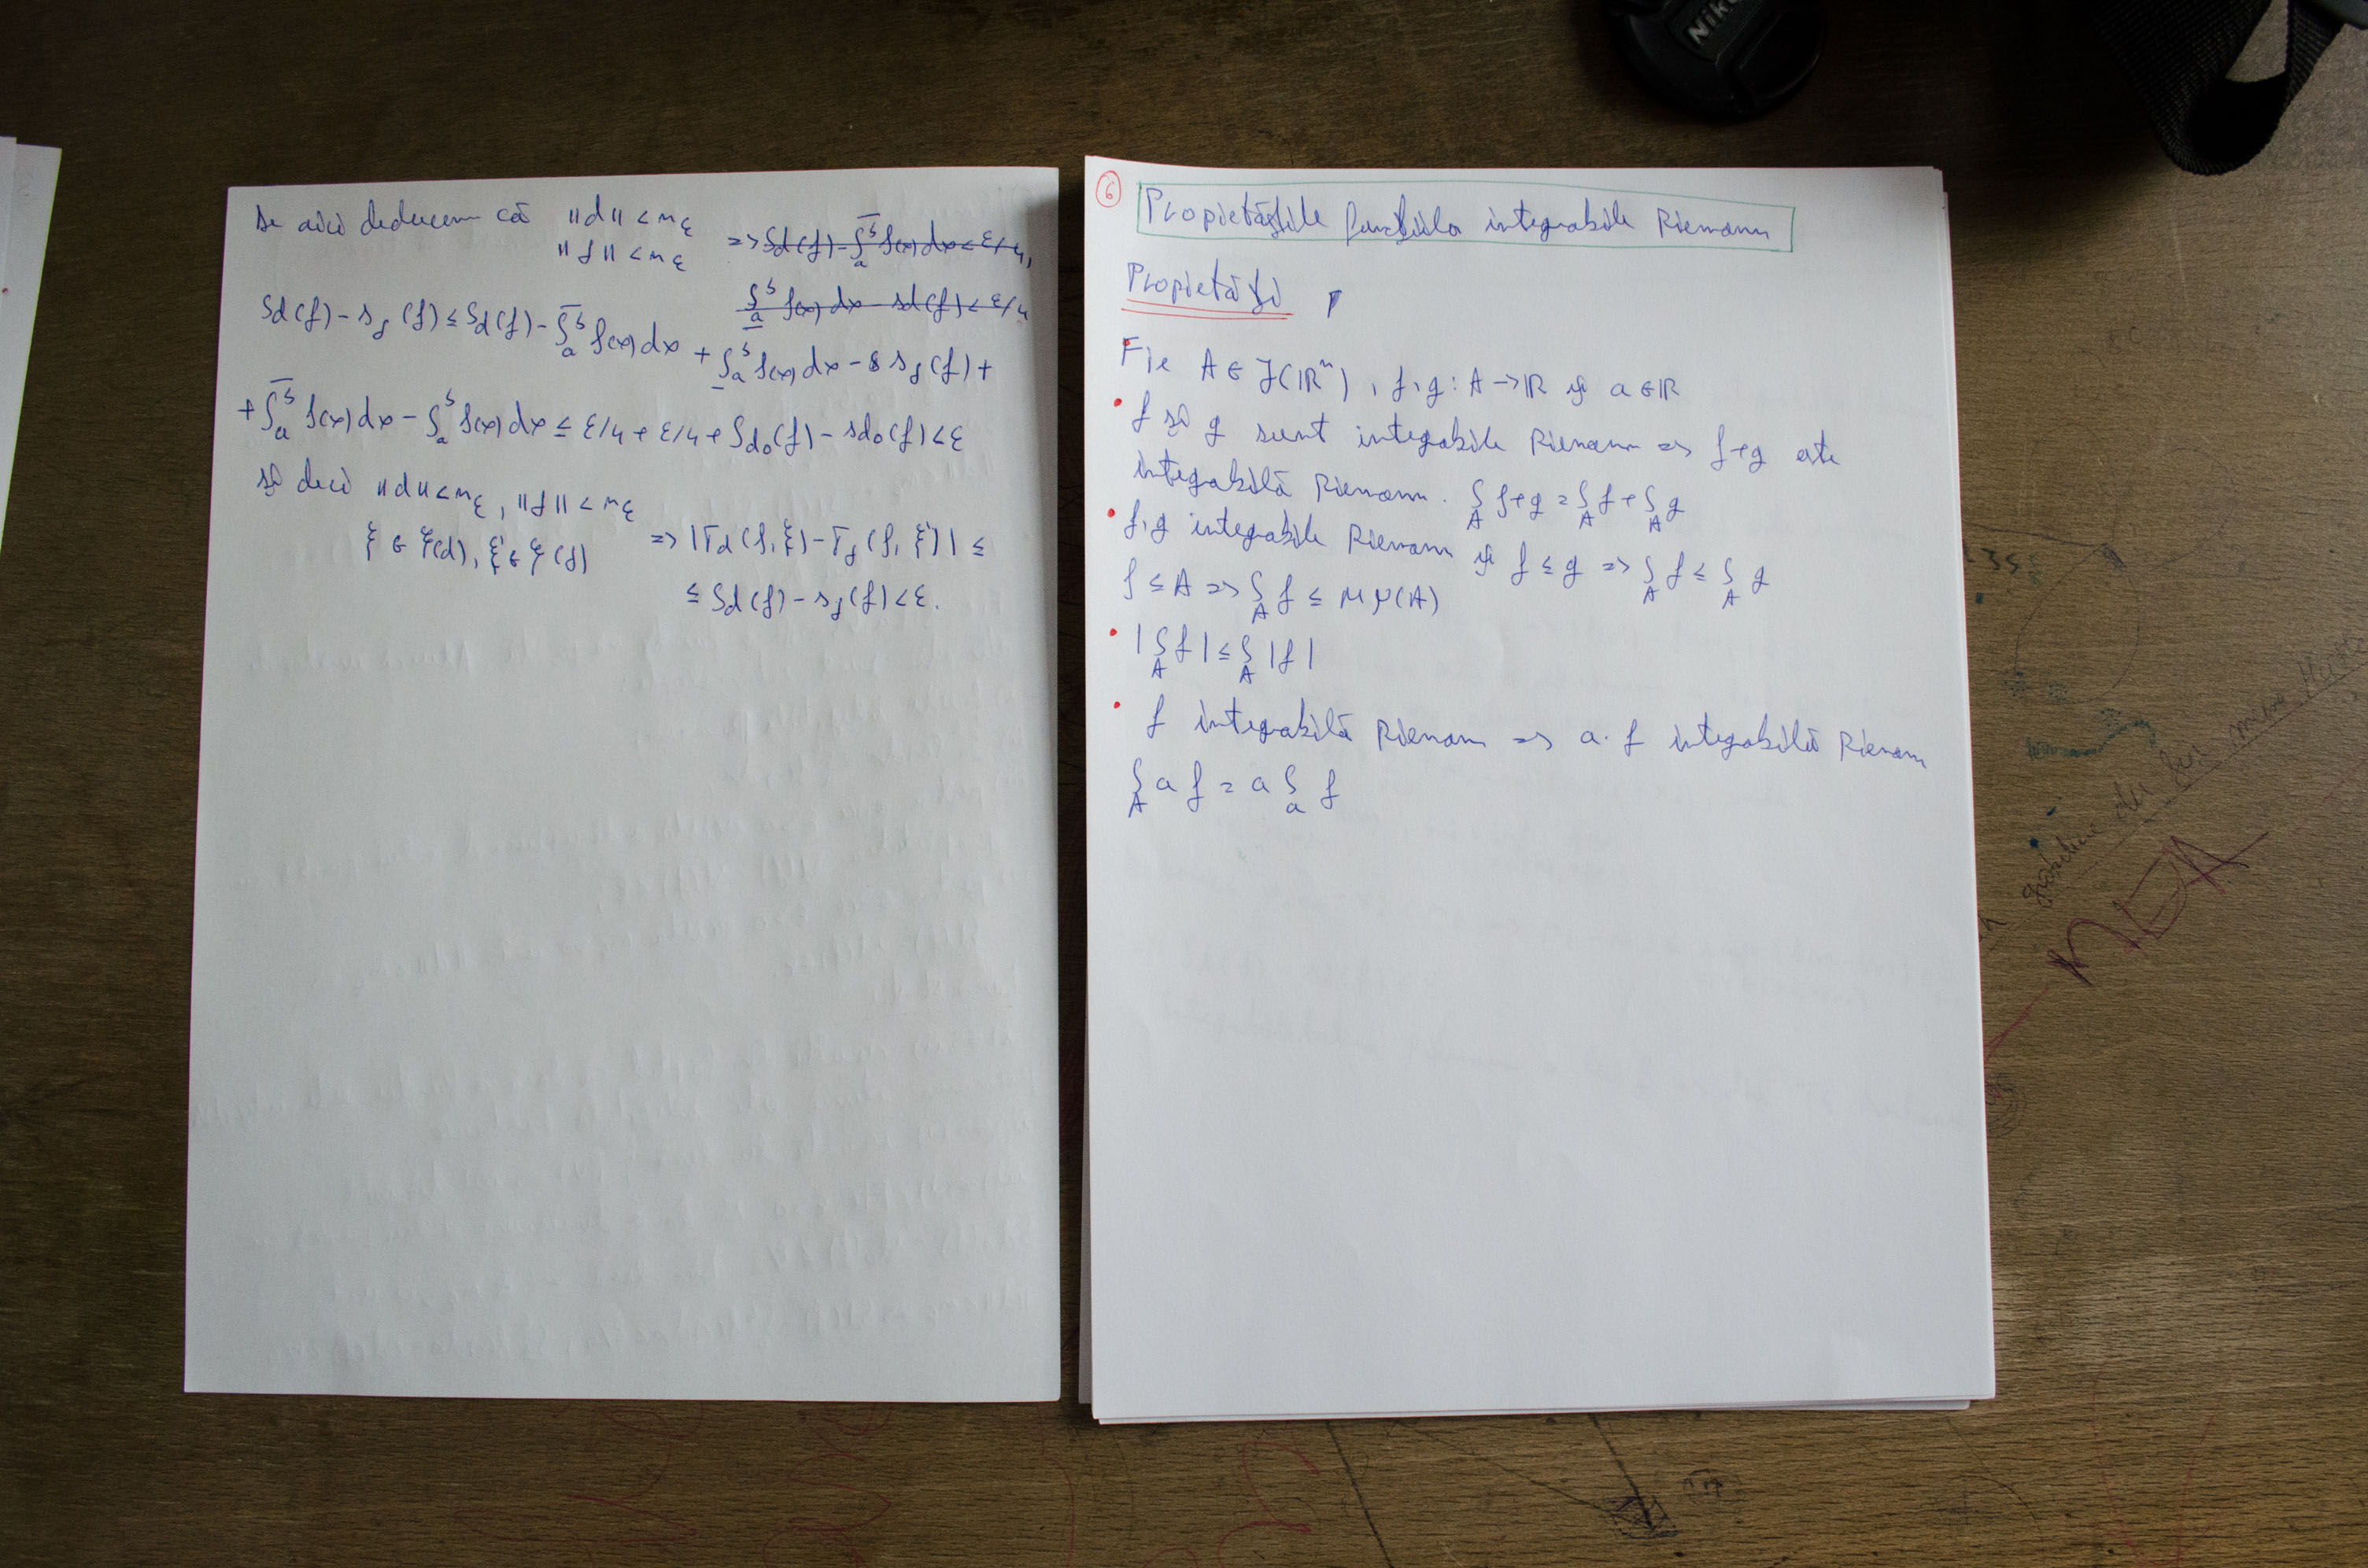 De aici deducem că ||d|| < η_ε
||f|| < η_ε => S_d(f) - ∫̄_a^b f(x) dx < ε/4,
∫_a^b f(x) dx - s_d(f) < ε/4
S_d(f) - s_f(f) ≤ S_d(f) - ∫̄_a^b f(x) dx + ∫_a^b f(x) dx - s_f(f) +
+ ∫̄_a^b f(x) dx - ∫_a^b f(x) dx ≤ ε/4 + ε/4 + S_d₀(f) - s_d₀(f) < ε
și deci ||d|| < η_ε, ||f|| < η_ε
ξ ∈ ξ(d), ξ' ∈ ξ(f) => |T_d(f, ξ) - T_f(f, ξ')| ≤
≤ S_d(f) - s_f(f) < ε.
6
Propietățile funcțiilo integrabile Riemann
Propietăți
Fie A ∈ J(ℝⁿ), f, g : A -> ℝ și a ∈ ℝ
• f și g sunt integabile Riemann => f+g este
integabilă Riemann. ∫_A f+g = ∫_A f + ∫_A g
• f, g integabile Riemann și f ≤ g => ∫_A f ≤ ∫_A g
f ≤ A => ∫_A f ≤ M μ(A)
• |∫_A f| ≤ ∫_A |f|
• f integabilă Riemann => a·f integabilă Riemann
∫_A a f = a ∫_a f
Nikon
MEA